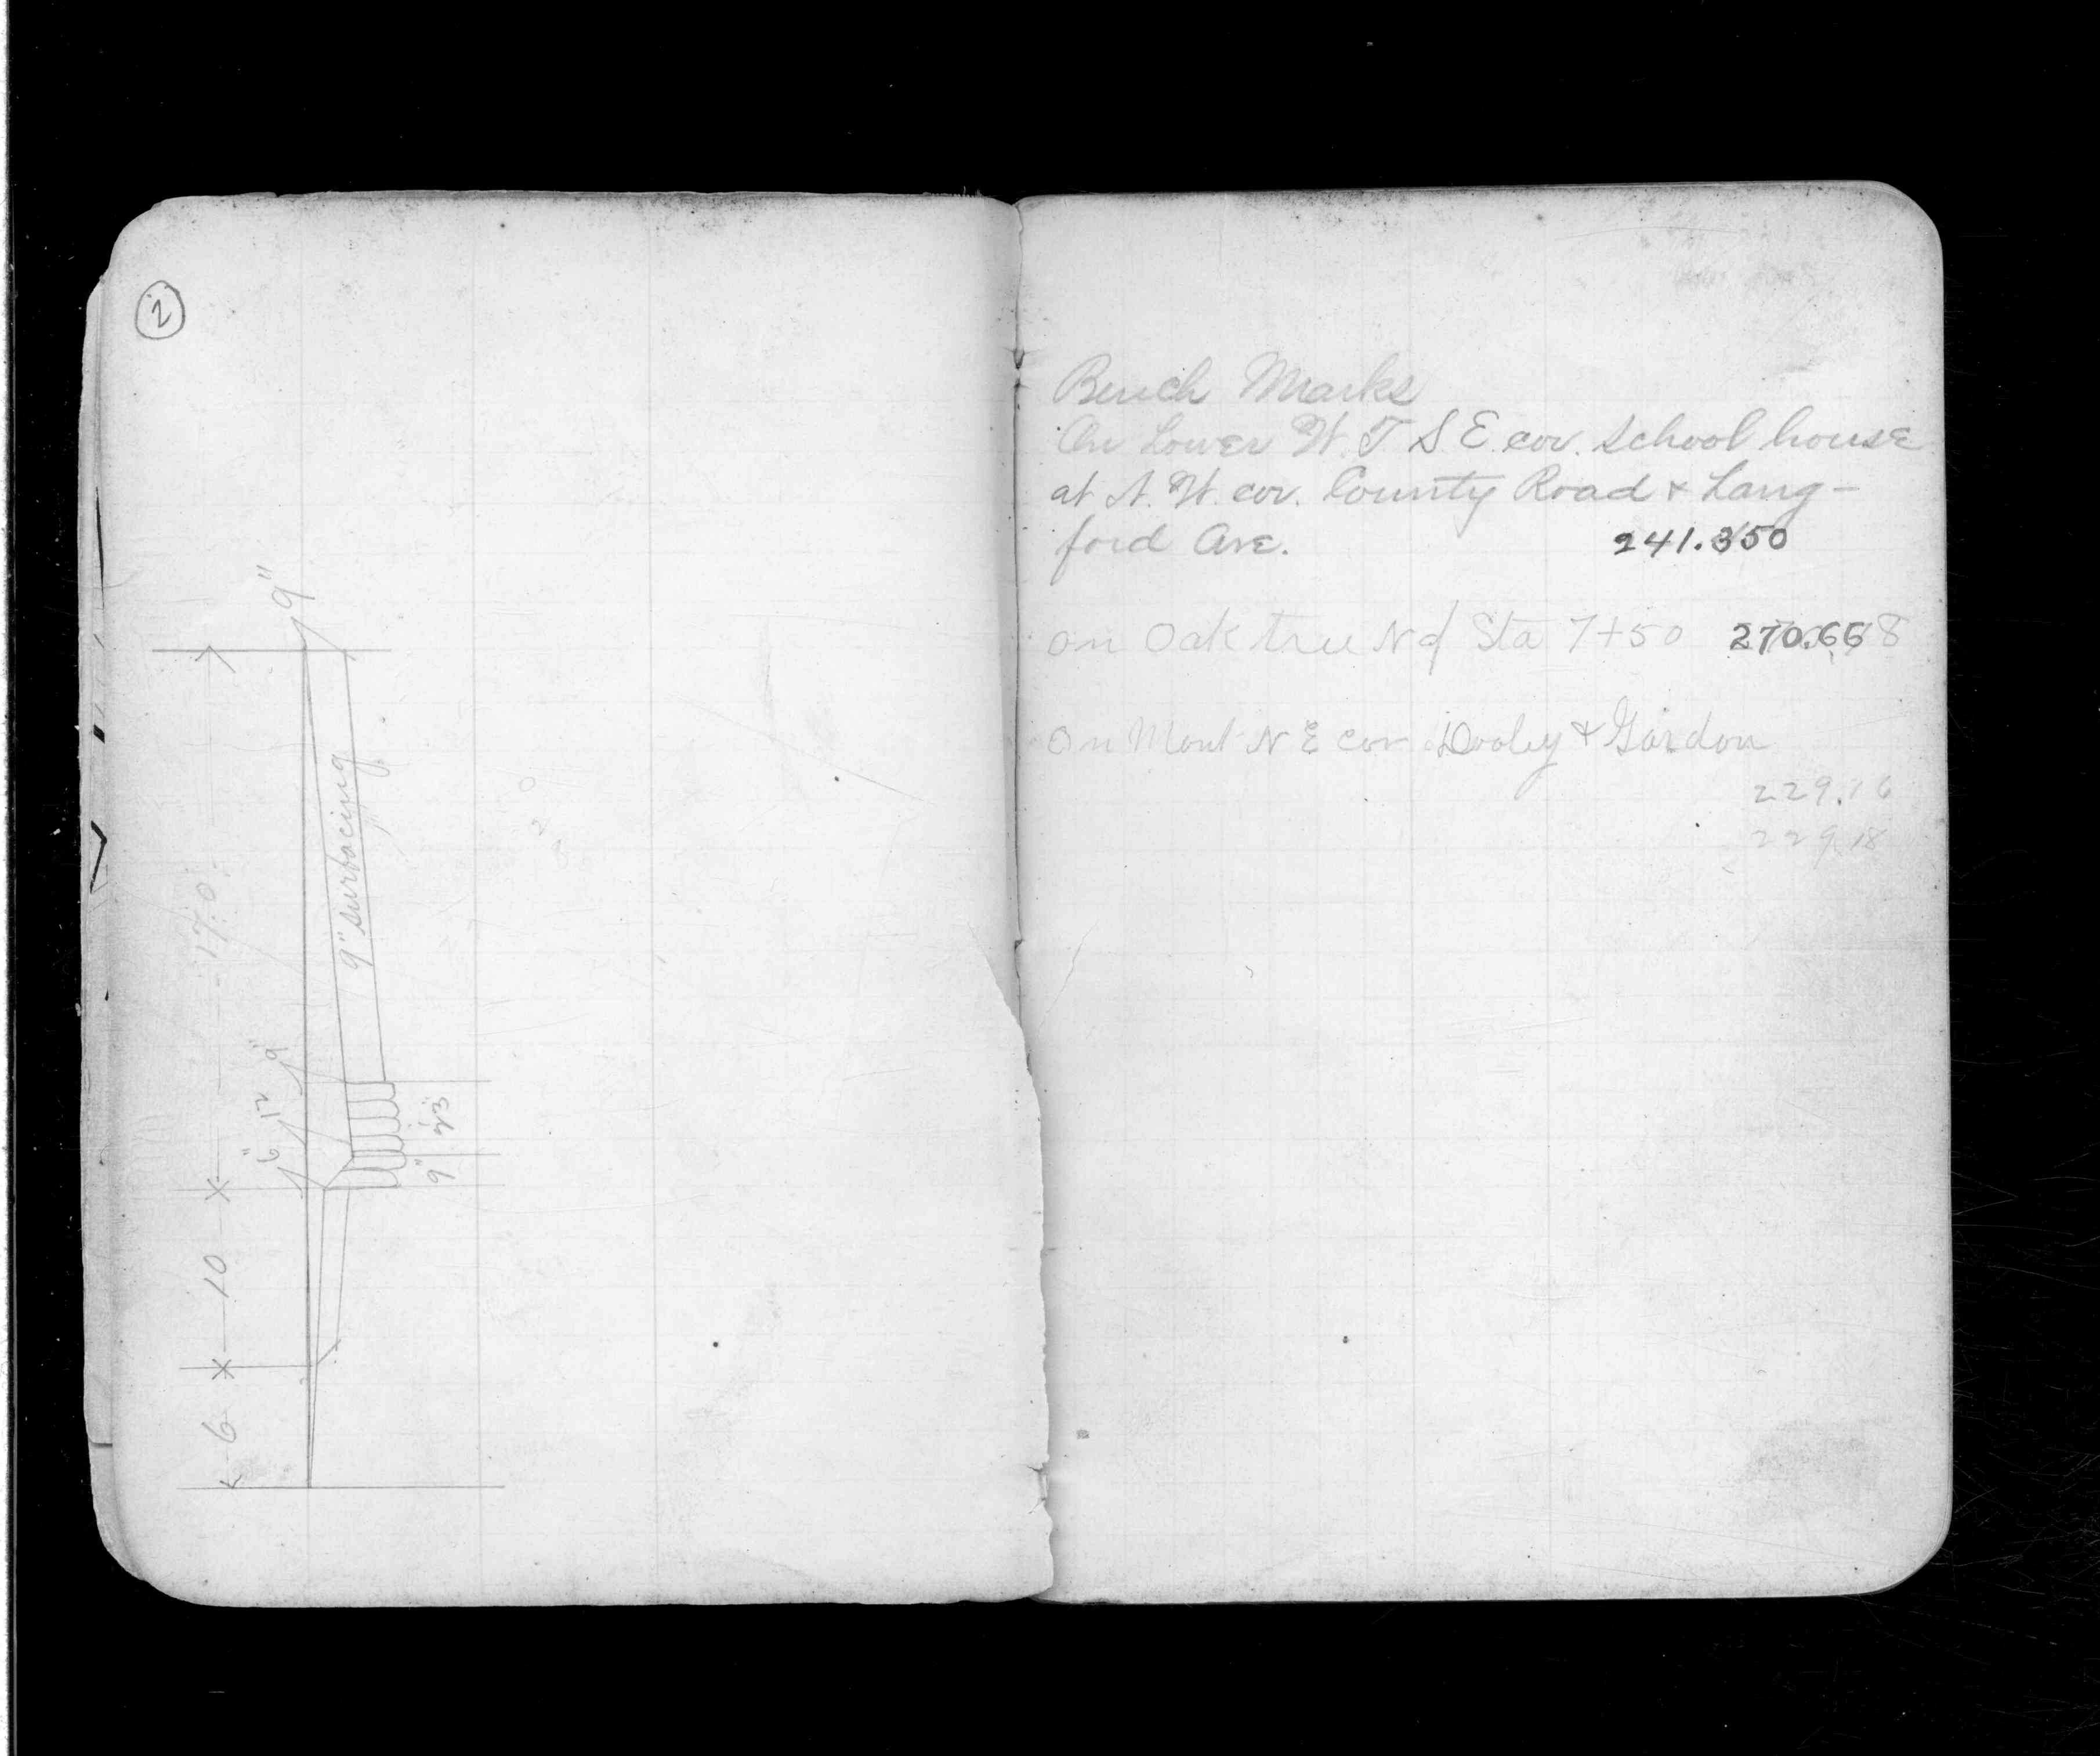 2
9"
9" surfacing
17.0
9"
12
6"
9"
10
6
Bench Marks
On Lower W. T S. E. cor. School house
at N. W. cor. County Road & Lang-
ford Ave. 241.350
On Oak tree N of Sta 7+50 270.668
On Mont N E cor Dooley & Gordon
229.16
229.18